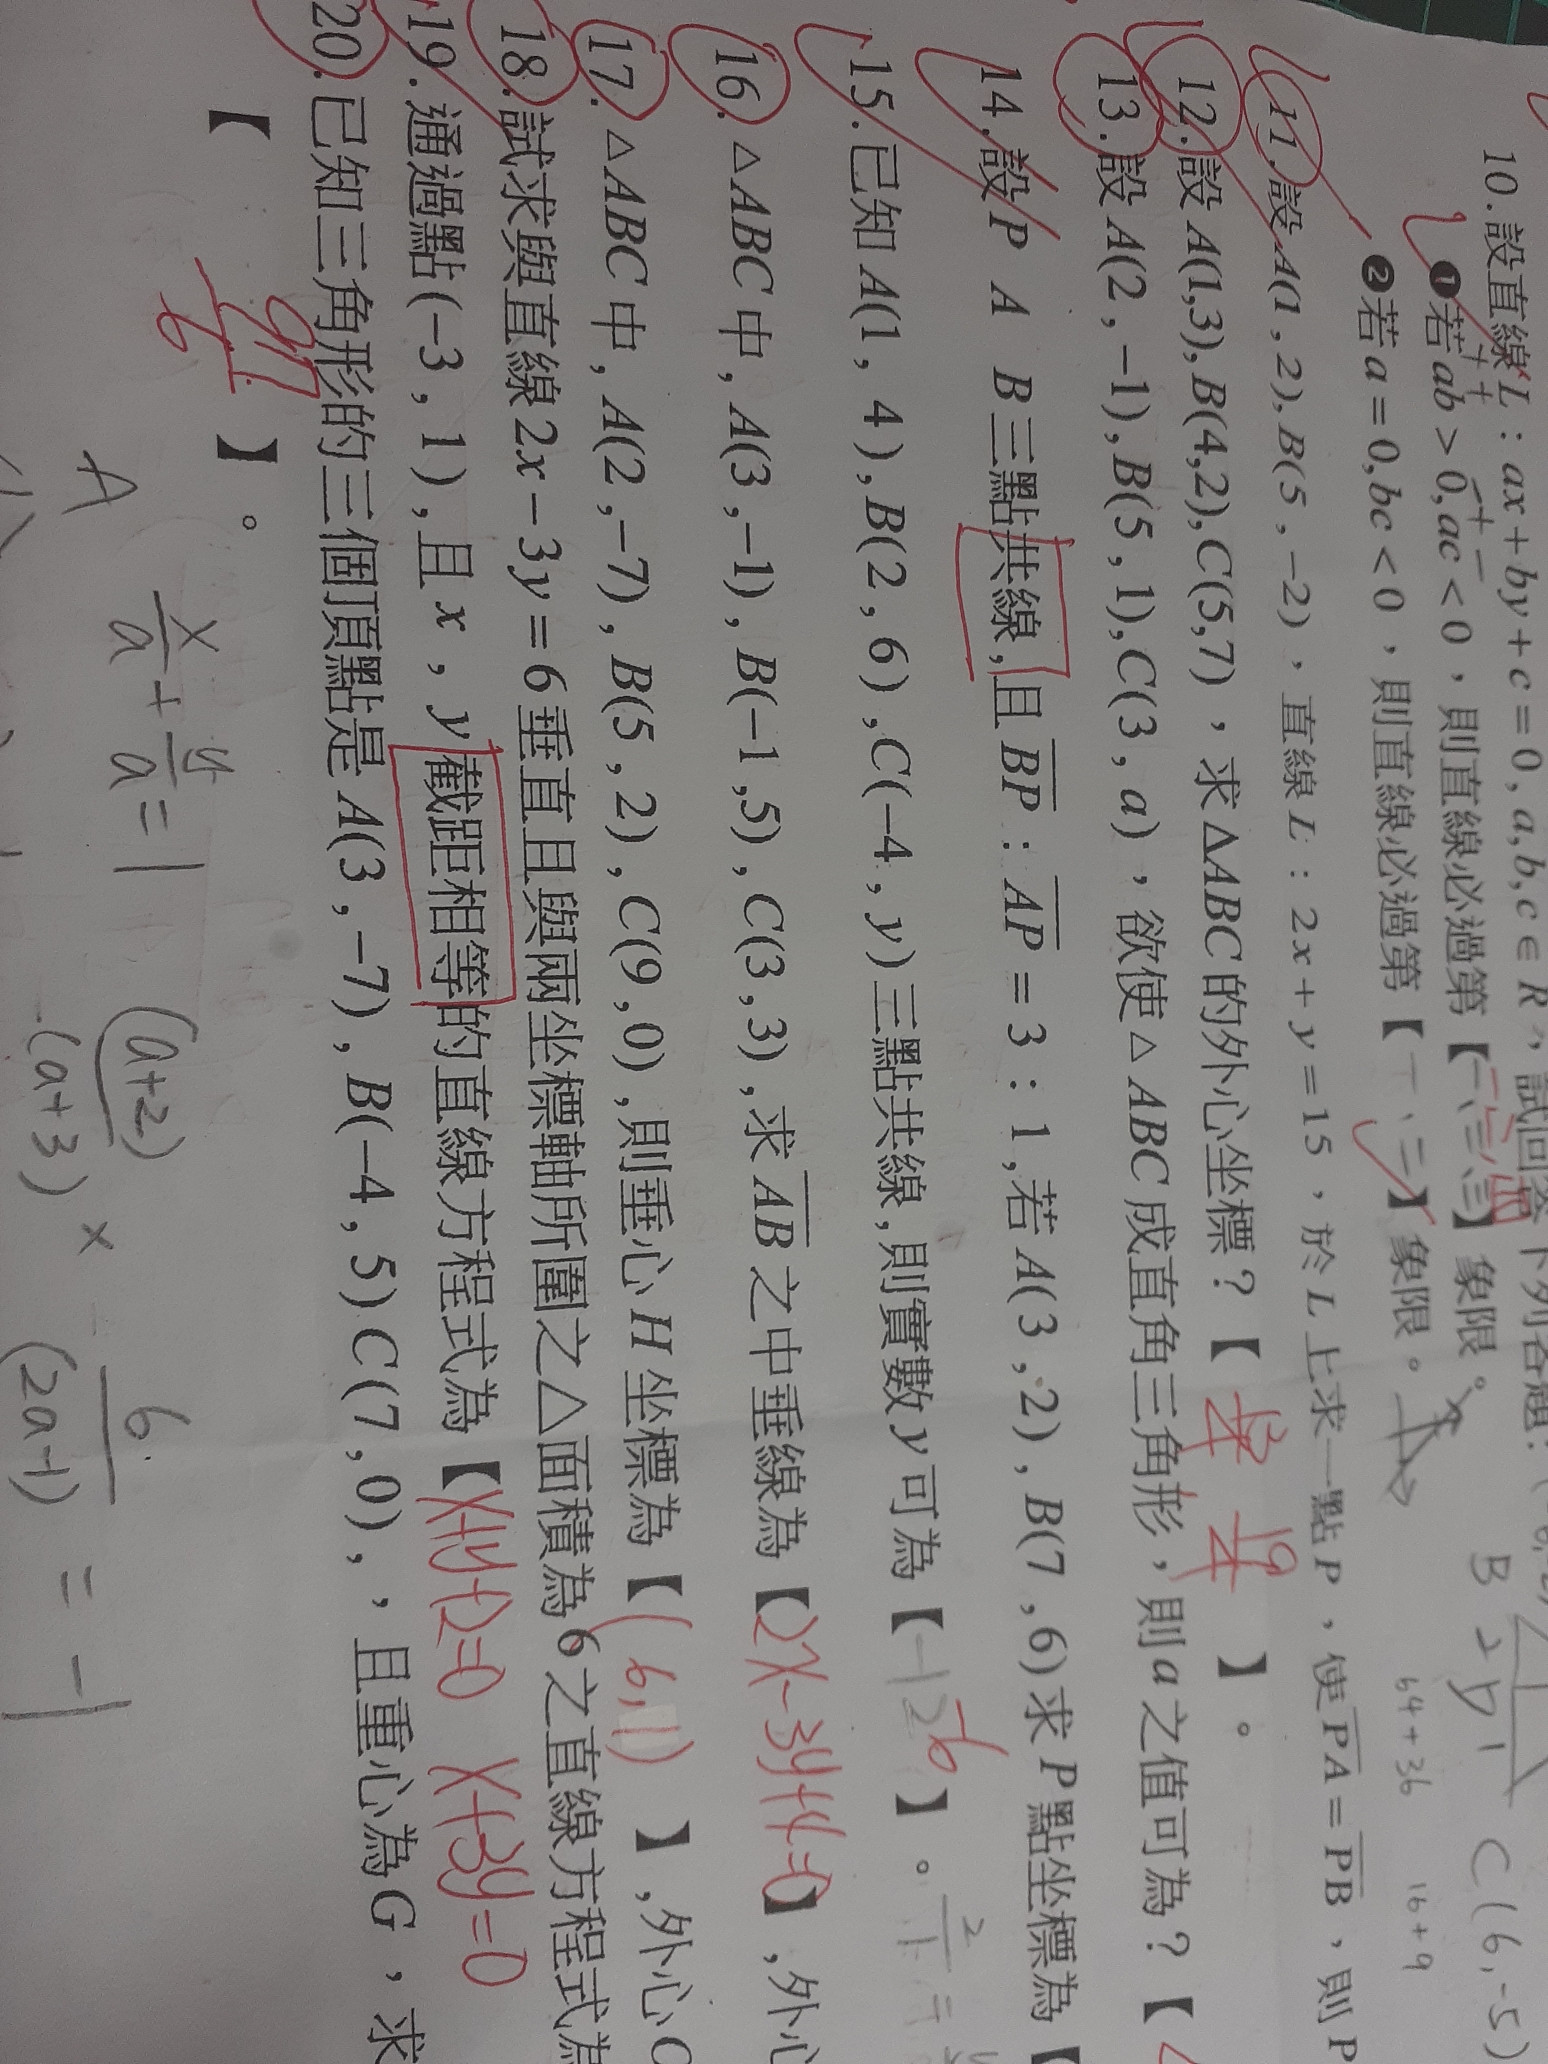 10.設直線L：ax+by+c=0, a,b,c∈R，試回答下列各題：
❶若ab>0,ac<0，則直線必過第【一、二、四】象限。
❷若a=0,bc<0，則直線必過第【一、二】象限。
11.設A(1,2),B(5,-2)，直線L：2x+y=15，於L上求一點P，使PA=PB，則P
12.設A(1,3),B(4,2),C(5,7)，求△ABC的外心坐標？【 】。
13.設A(2,-1),B(5,1),C(3,a)，欲使△ABC成直角三角形，則a之值可為？【
14.設P A B三點共線,且BP：AP=3：1,若A(3,2),B(7,6)求P點坐標為【
15.已知A(1,4),B(2,6),C(-4,y)三點共線,則實數y可為【-6】。
16.△ABC中,A(3,-1),B(-1,5),C(3,3),求AB之中垂線為【2x-3y+4=0】,外心
17.△ABC中,A(2,-7),B(5,2),C(9,0),則垂心H坐標為【(6,1)】,外心
18.試求與直線2x-3y=6垂直且與兩坐標軸所圍之△面積為6之直線方程式為
19.通過點(-3,1),且x,y截距相等的直線方程式為【x+y+2=0 x+3y=0
20.已知三角形的三個頂點是A(3,-7),B(-4,5)C(7,0),，且重心為G，求
【 】。
64+36
16+9
B 2 1 C(6,-5)
A
x/a+y/a=1
(a+2)
-(a+3) × 6/(2a-1) = -1